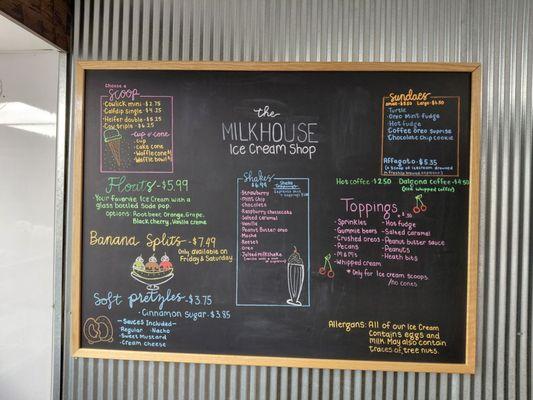 Choose a
Scoop
Cowlick mini - $2.75
Calfdip single - $4.25
Heifer double - $5.25
Cow triple - $6.25
- cup or cone
- Cup
- Cake cone
- Waffle cone $1
- Waffle bowl $1
Floats - $5.99
Your favorite Ice Cream with a
glass bottled soda pop.
options: Root beer, Orange, Grape,
Black cherry, Vanilla creme
Banana Splits - $7.49
Only available on
Friday & Saturday
Soft Pretzels - $3.75
- Cinnamon Sugar - $3.85
- Sauces Included -
- Regular - Nacho
- Sweet Mustard
- Cream cheese
the
MILKHOUSE
Ice Cream Shop
Shakes
$6.99
Strawberry
Mint chip
Chocolate
Raspberry cheesecake
Salted Caramel
Vanilla
Peanut Butter oreo
Mocha
Reeses
Oreo
Sundaes
Small - $5.50 Large - $6.50
Turtle
Oreo Mint fudge
Hot fudge
Coffee Oreo
Chocolate Chip Cookie
Affogato - $5.35
Hot Coffee - $2.50
Dalgona coffee - $4.50
(iced whipped coffee)
Toppings
- Sprinkles
- Gummie bears
- Crushed oreos
- Pecans
- M&M's
- Whipped cream
- Hot fudge
- Salted caramel
- Peanut butter sauce
- Peanuts
- Heath bits
* Only for Ice Cream scoops
/no cones
Allergans: All of our Ice Cream
Contains eggs and
milk. May also contain
traces of tree nuts.